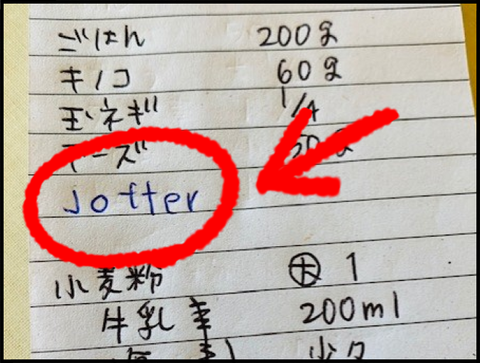 ごはん 200g
キノコ 60g
玉ネギ 1/4
チーズ 50g
Jotter
小麦粉 大 1
牛乳 200ml